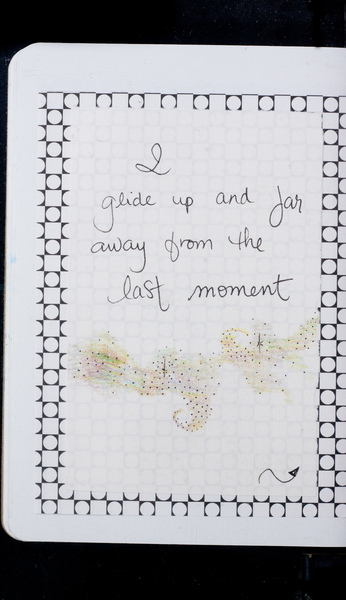 I
glide up and far
away from the
last moment